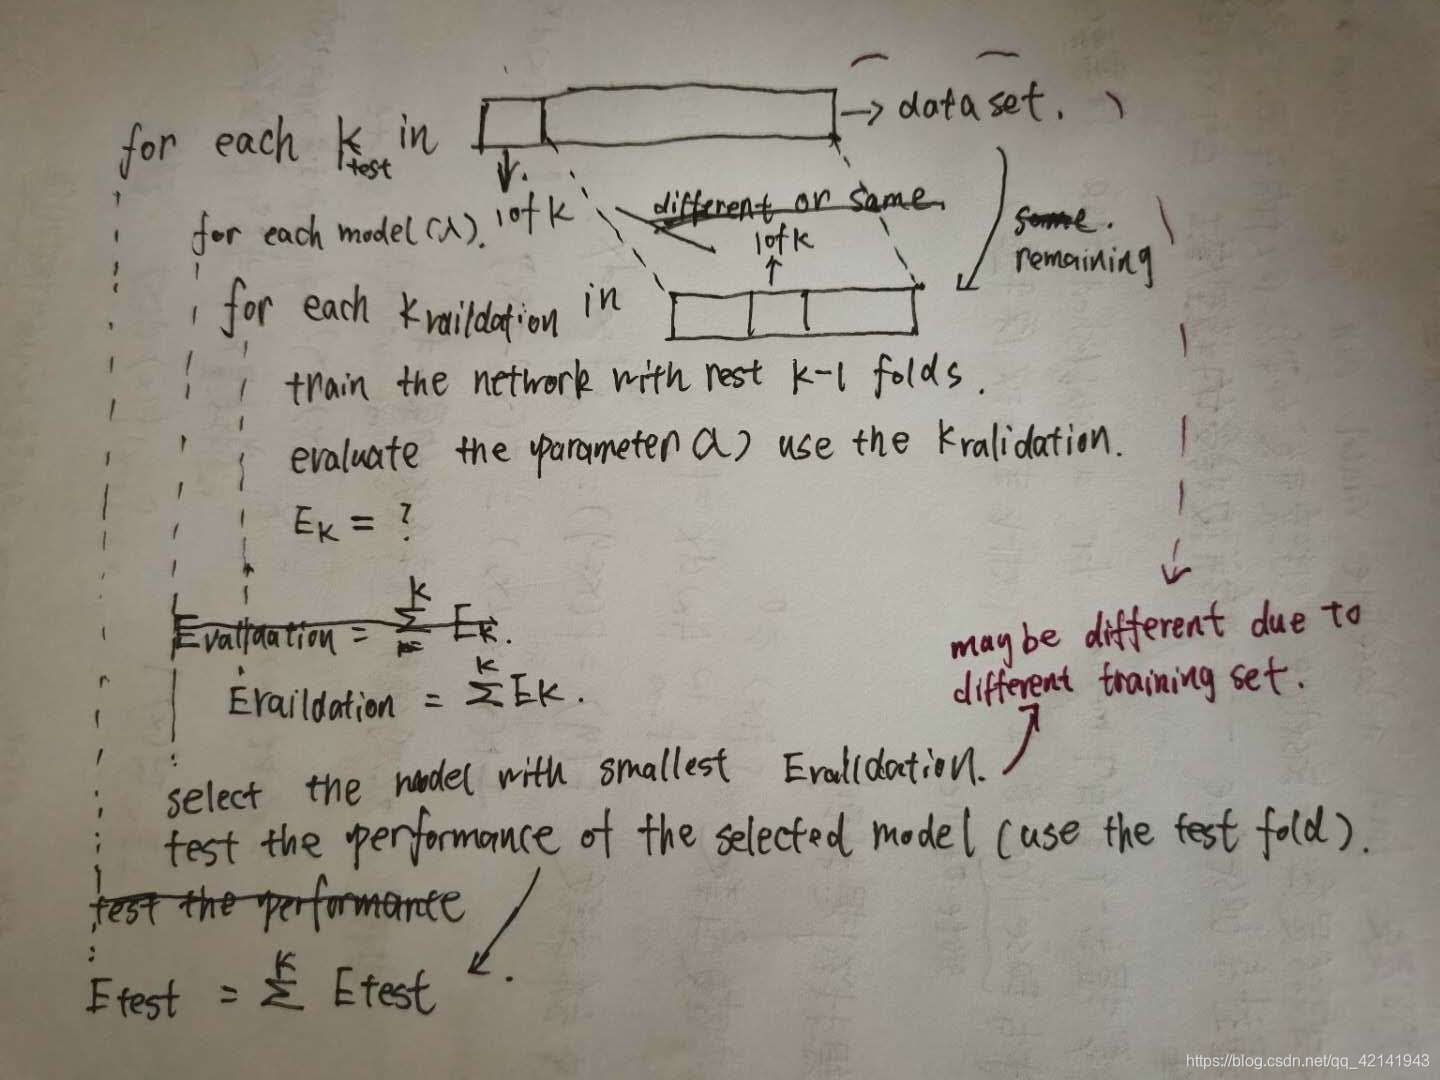 for each K test in → data set.
for each model (λ). 1 of K different or same
1 of K
some.
remaining
for each Kvaildation in
train the network with rest k-1 folds.
evaluate the parameter (λ) use the Kvalidation.
EK = ?
Evalidation = K Σ EK.
Evaildation = K Σ EK.
may be different due to
different training set.
select the model with smallest Evalidation.
test the performance of the selected model (use the test fold).
test the performance
Etest = K Σ Etest
https://blog.csdn.net/qq_42141943